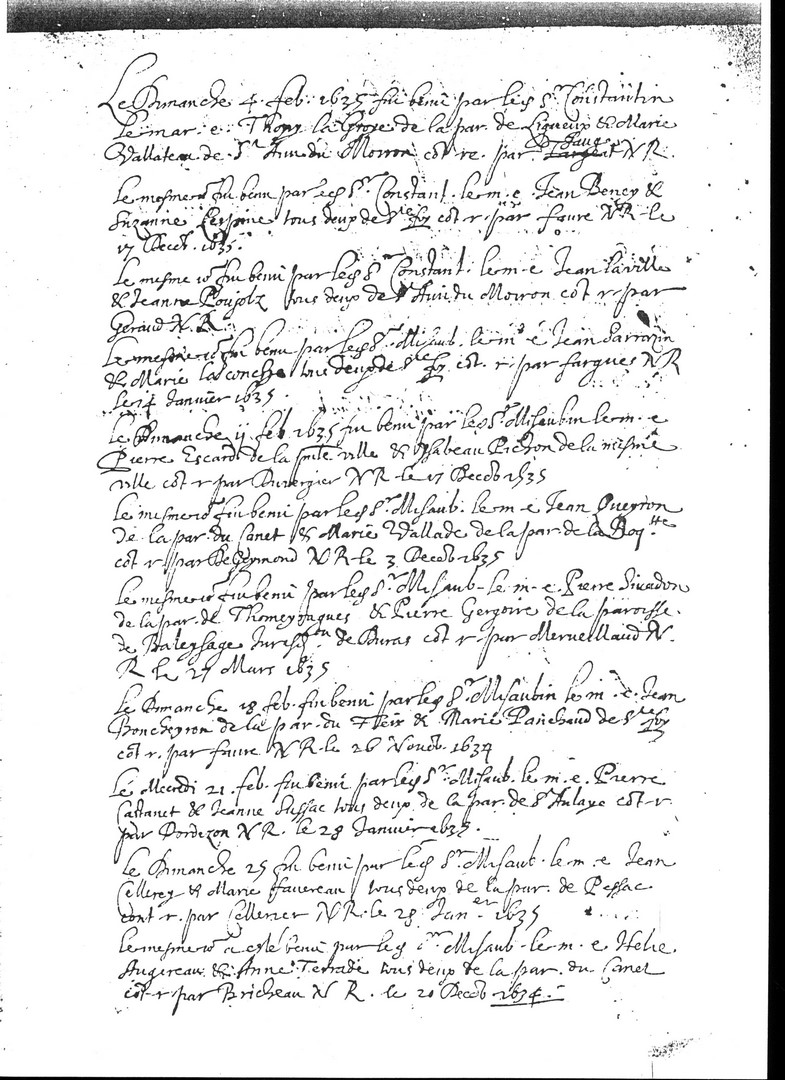 Le Dimanche 4 feb. 1635 fu beni par le ... Sr Constantin
le mar. e. Thony la Groye de la par. de Ligueux & Marie
Vallateau de St Avi du Moiron cõt re. par Faug NR.
Le mesme io fu beni par le Sr Constant. le m. e Jean Beney &
Suzanne tous deux de Ste foy cõt. r. par faure NR le
17 Decéb. 1635.
Le mesme io fu beni par le Sr Constant. le m. e Jean Laville
& Jeanne Pouyolz tous deux de St Avi du Moiron cõt r. par
Geraud N. R.
Le mesme io fu beni par le Sr Misaub. le mr e Jean Sarrazin
& Marie Lasconche tous deux de Ste foy cõt. r. par fargues NR
le 14 Janvier 1635.
Le Dimanche 11 feb 1635 fu beni par le Sr Misaubin le m. e
Pierre Escard de la ville & Ysabeau Pichon de la mesme
ville cõt r par Duvergier NR le 17 Decéb 1635
Le mesme io fu beni par le Sr Misaub. le m. e Jean Queyron
de la par. du Canet & Marie Vallade de la par. de la Roqtte
cõt r. par DeGeymond NR le 3 Decéb 1635
Le mesme io fu beni par le Sr Misaub. le m. e Pierre Sivadon
de la par. de Thomeyragues & Pierre Gergoire de la paroisse
de Baleysage Jurisdon de Duras cõt r. par Merveillaud N.
R le 27 Mars 1635
Le Dimanche 18 feb. fu beni par le Sr Misaubin le m. e. Jean
Boncheyron de la par. du Fleix & Marie Panchaud de Ste foy
cõt r. par faure NR. le 26 Novéb. 1634
Le Mecredi 21. feb. fu beni par le Sr Misaub. le m. e. Pierre
Castanet & Jeanne Sussac tous deux de la par. de St Aulaye cõt. r.
par Dordezon NR. le 28 Janvier 1635.
Le Dimanche 25 fu beni par le Sr Misaub. le m. e Jean
Cellerey & Marie favereau tous deux de la par. de Pessac
cont r. par Cellerier NR. le 28 Janer 1635
Le mesme io a esté beni par le Sr Misaub. le m. e Helie
Augereau & Anne Terrade tous deux de la par. du Canet
cõt r. par Bricheau NR. le 20 Decéb 1634.